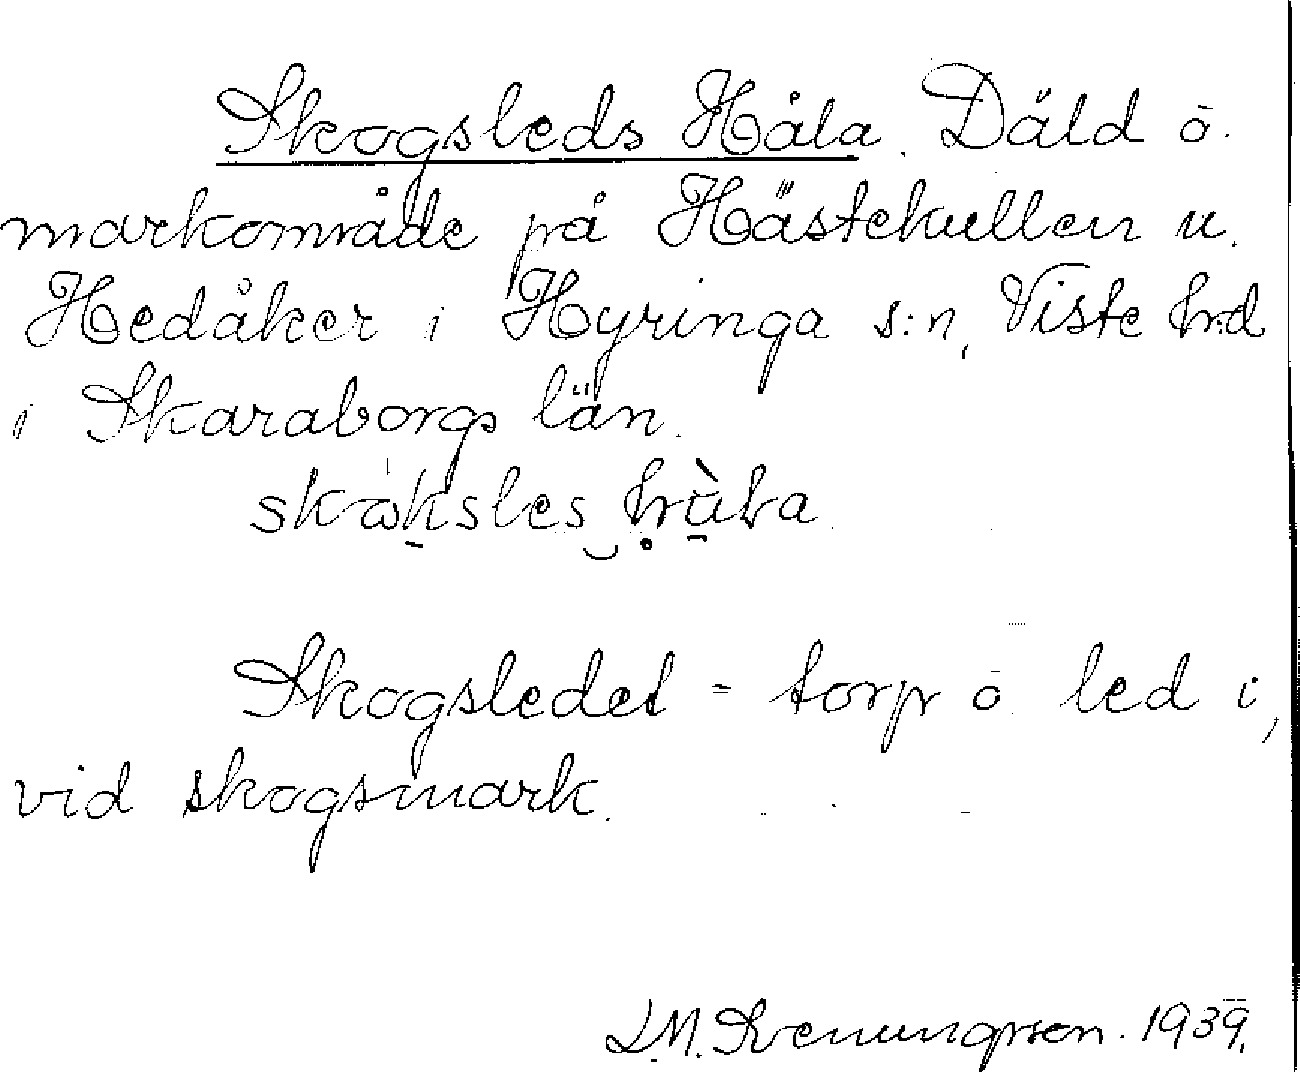 Skogsleds Håla. Däld o.
markområde på Hästekullen u.
Hedåker i Hyringa s:n, Viste hrd
i Skaraborgs län.
Skogsledet = torp o led i,
vid skogsmark.
L.M. Svenungsson. 1939.